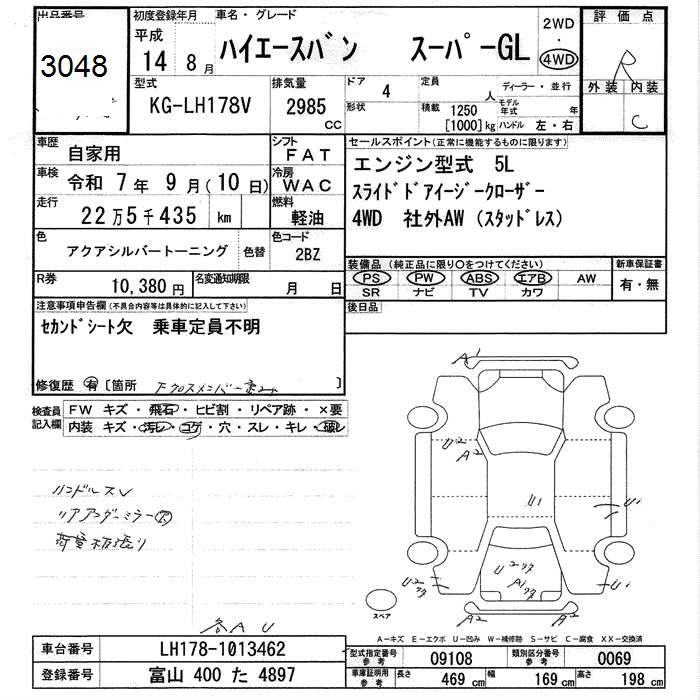 出品番号 初度登録年月 車名・グレード 2WD 評価点
3048 平成 14年 8月 ハイエースバン スーパーGL ・ 4WD R
型式 排気量 ドア 4 定員 人 ディーラー・並行 外装 内装
KG-LH178V 2985 cc 形状 積載 1250 [1000]kg モデル年式 年 ハンドル 左・右 C
車歴 自家用 シフト FAT セールスポイント(正常に機能するものに限ります)
車検 令和 7年 9月(10日) 冷房 WAC エンジン型式 5L
走行 22万5千435 km 燃料 軽油 スライドドアイージークローザー
4WD 社外AW (スタッドレス)
色 アクアシルバートーニング 色替 色コード 2BZ
装備品 (純正品に限り○をつけてください) 新車保証書
R券 10,380円 名変通知期限 月 日 PS PW ABS エアB AW 有・無
SR ナビ TV カワ
注意事項申告欄(不具合内容等は具体的に記入して下さい) 後日品
セカンドシート欠 乗車定員不明
修復歴 有 〔箇所 〕
検査員記入欄 FW キズ・飛石・ヒビ割・リペア跡・×要
内装 キズ・汚レ・コゲ・穴・スレ・キレ・破レ
A1
U2
A2
ハンドルスレ U1 U1
リアアンダーミラー欠
U2
A1
U2 U2
スペア A2 A2
各AU
A-キズ E-エクボ U-凹み W-補修跡 S-サビ C-腐食 XX-交換済
車台番号 LH178-1013462 型式指定番号 参考 09108 類別区分番号 参考 0069
登録番号 富山 400 た 4897 車庫証明用 参考 長さ 469 cm 幅 169 cm 高さ 198 cm